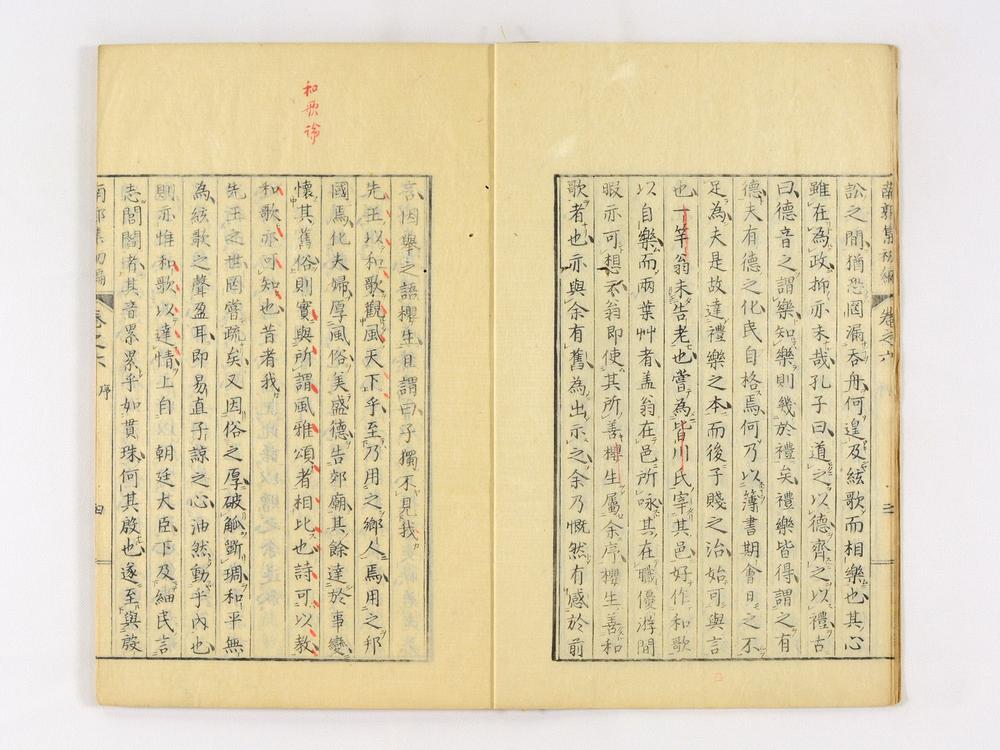 南郭集初編 卷之六 三
訟之間猶恐罔漏吞舟何遑及絃歌而相樂也其心
雖在為政抑亦未哉孔子曰道之以德齊之以禮古
曰德音之謂樂知樂則幾於禮矣禮樂皆得謂之有
德夫有德之化民自格焉何乃以簿書期會日之不
足為夫是故達禮樂之本而後子賤之治始可與言
也十竿翁未告老也嘗為皆川氏宰其邑好作和歌
以自樂而兩葉艸者盖翁在邑所咏其在職優游間
暇亦可想不翁即使其所善櫻生屬余序櫻生善和
歌者也亦與余有舊為出示之余乃慨然有感於前
言因舉之語櫻生且謂曰子獨不見我
先王以和歌觀風天下乎至乃用之鄉人焉用之邦
國焉化夫婦厚風俗美盛德告郊廟其餘達於事變
懷其舊俗則實與所謂風雅頌者相比也詩可以教
和歌亦可知也昔者我
先王之世罔嘗疏矣又因俗之厚破觚斲琱和平無
為絃歌之聲盈耳即易直子諒之心油然動乎內也
則亦惟和歌以達情上自以朝廷大臣下及細民言
志閭閻者其音累累乎如貫珠何其殷也遂至與殷
南郭集初編 卷之六 序 四
和歌論